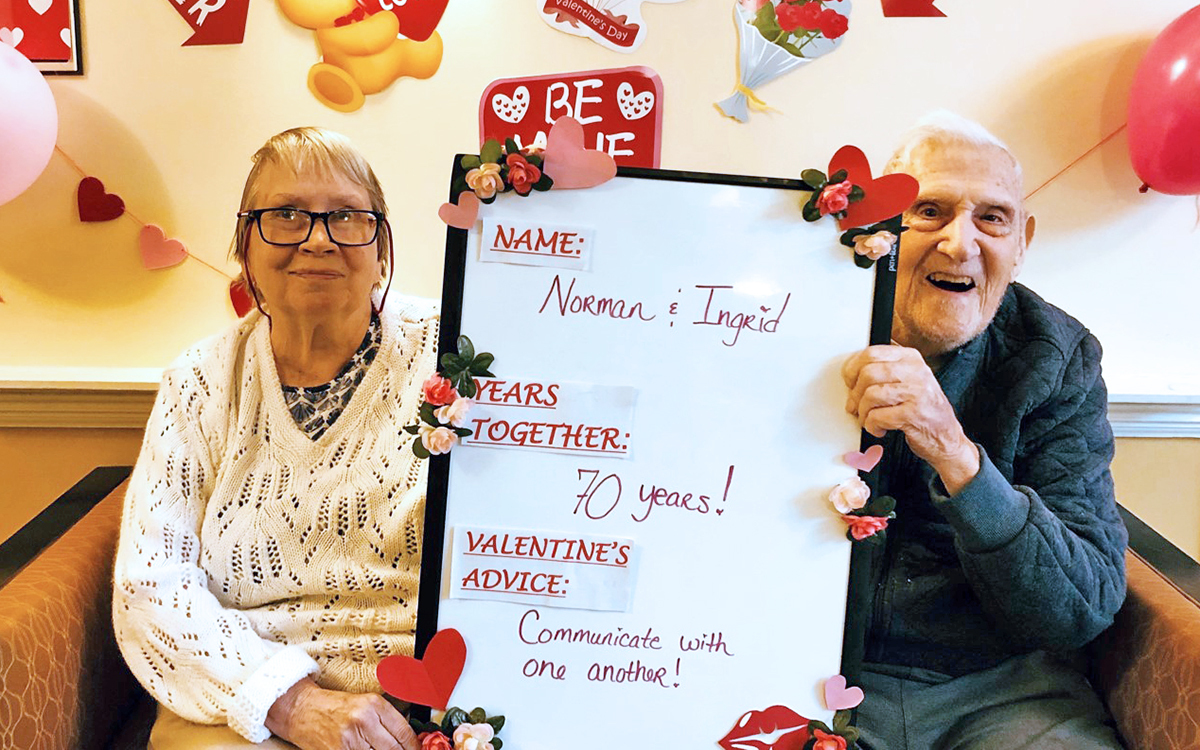 Valentine's Day
BE
MINE
NAME:
Norman & Ingrid
YEARS
TOGETHER:
70 years!
VALENTINE'S
ADVICE:
Communicate with
one another!